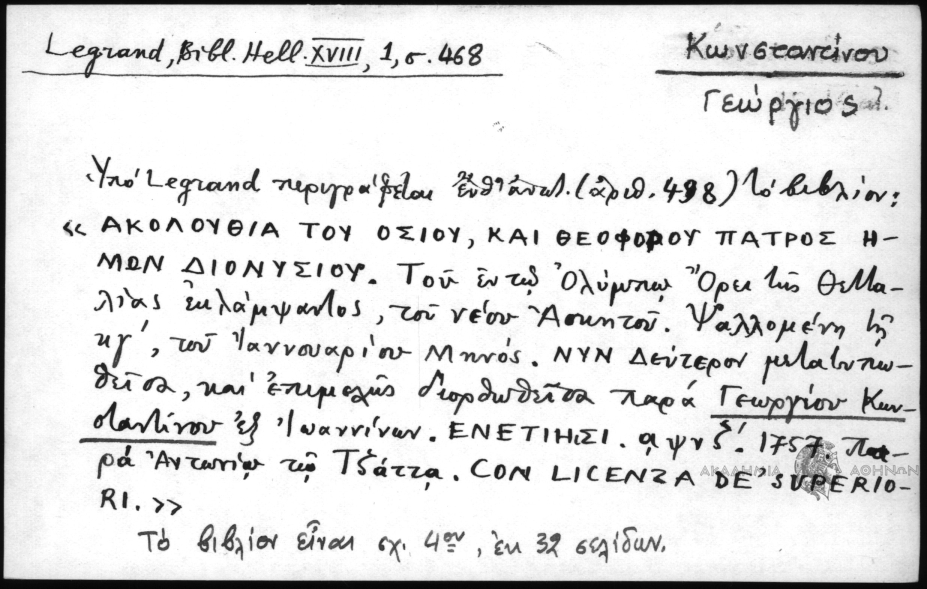 Legrand, Bibl. Hell. XVIII, 1, σ. 468
Κωνσταντίνου
Γεώργιος
Ὑπό Legrand περιγράφεται (ἀριθ. 498) τό βιβλίον:
« ΑΚΟΛΟΥΘΙΑ ΤΟΥ ΟΣΙΟΥ, ΚΑΙ ΘΕΟΦΟΡΟΥ ΠΑΤΡΟΣ Η-
ΜΩΝ ΔΙΟΝΥΣΙΟΥ. Τοῦ ἐν τῷ Ὀλύμπῳ Ὄρει τῆς Θεττα-
λίας ἐκλάμψαντος, τοῦ νέου Ἀσκητοῦ. Ψαλλομένη τῇ
κγ΄, τοῦ Ἰαννουαρίου Μηνός. ΝΥΝ Δεύτερον μετατυπω-
θεῖσα, καί ἐπιμελῶς διορθωθεῖσα παρά Γεωργίου Κων-
σταντίνου ἐξ Ἰωαννίνων. ΕΝΕΤΙΗΣΙ. αψνζ΄. 1757. Πα-
ρά Ἀντωνίῳ τῷ Τζάττᾳ. CON LICENZA DE' SUPERIO-
RI. »
ΑΚΑΔΗΜΙΑ ΑΘΗΝΩΝ
Τό βιβλίον εἶναι σχ. 4ον, ἐκ 32 σελίδων.